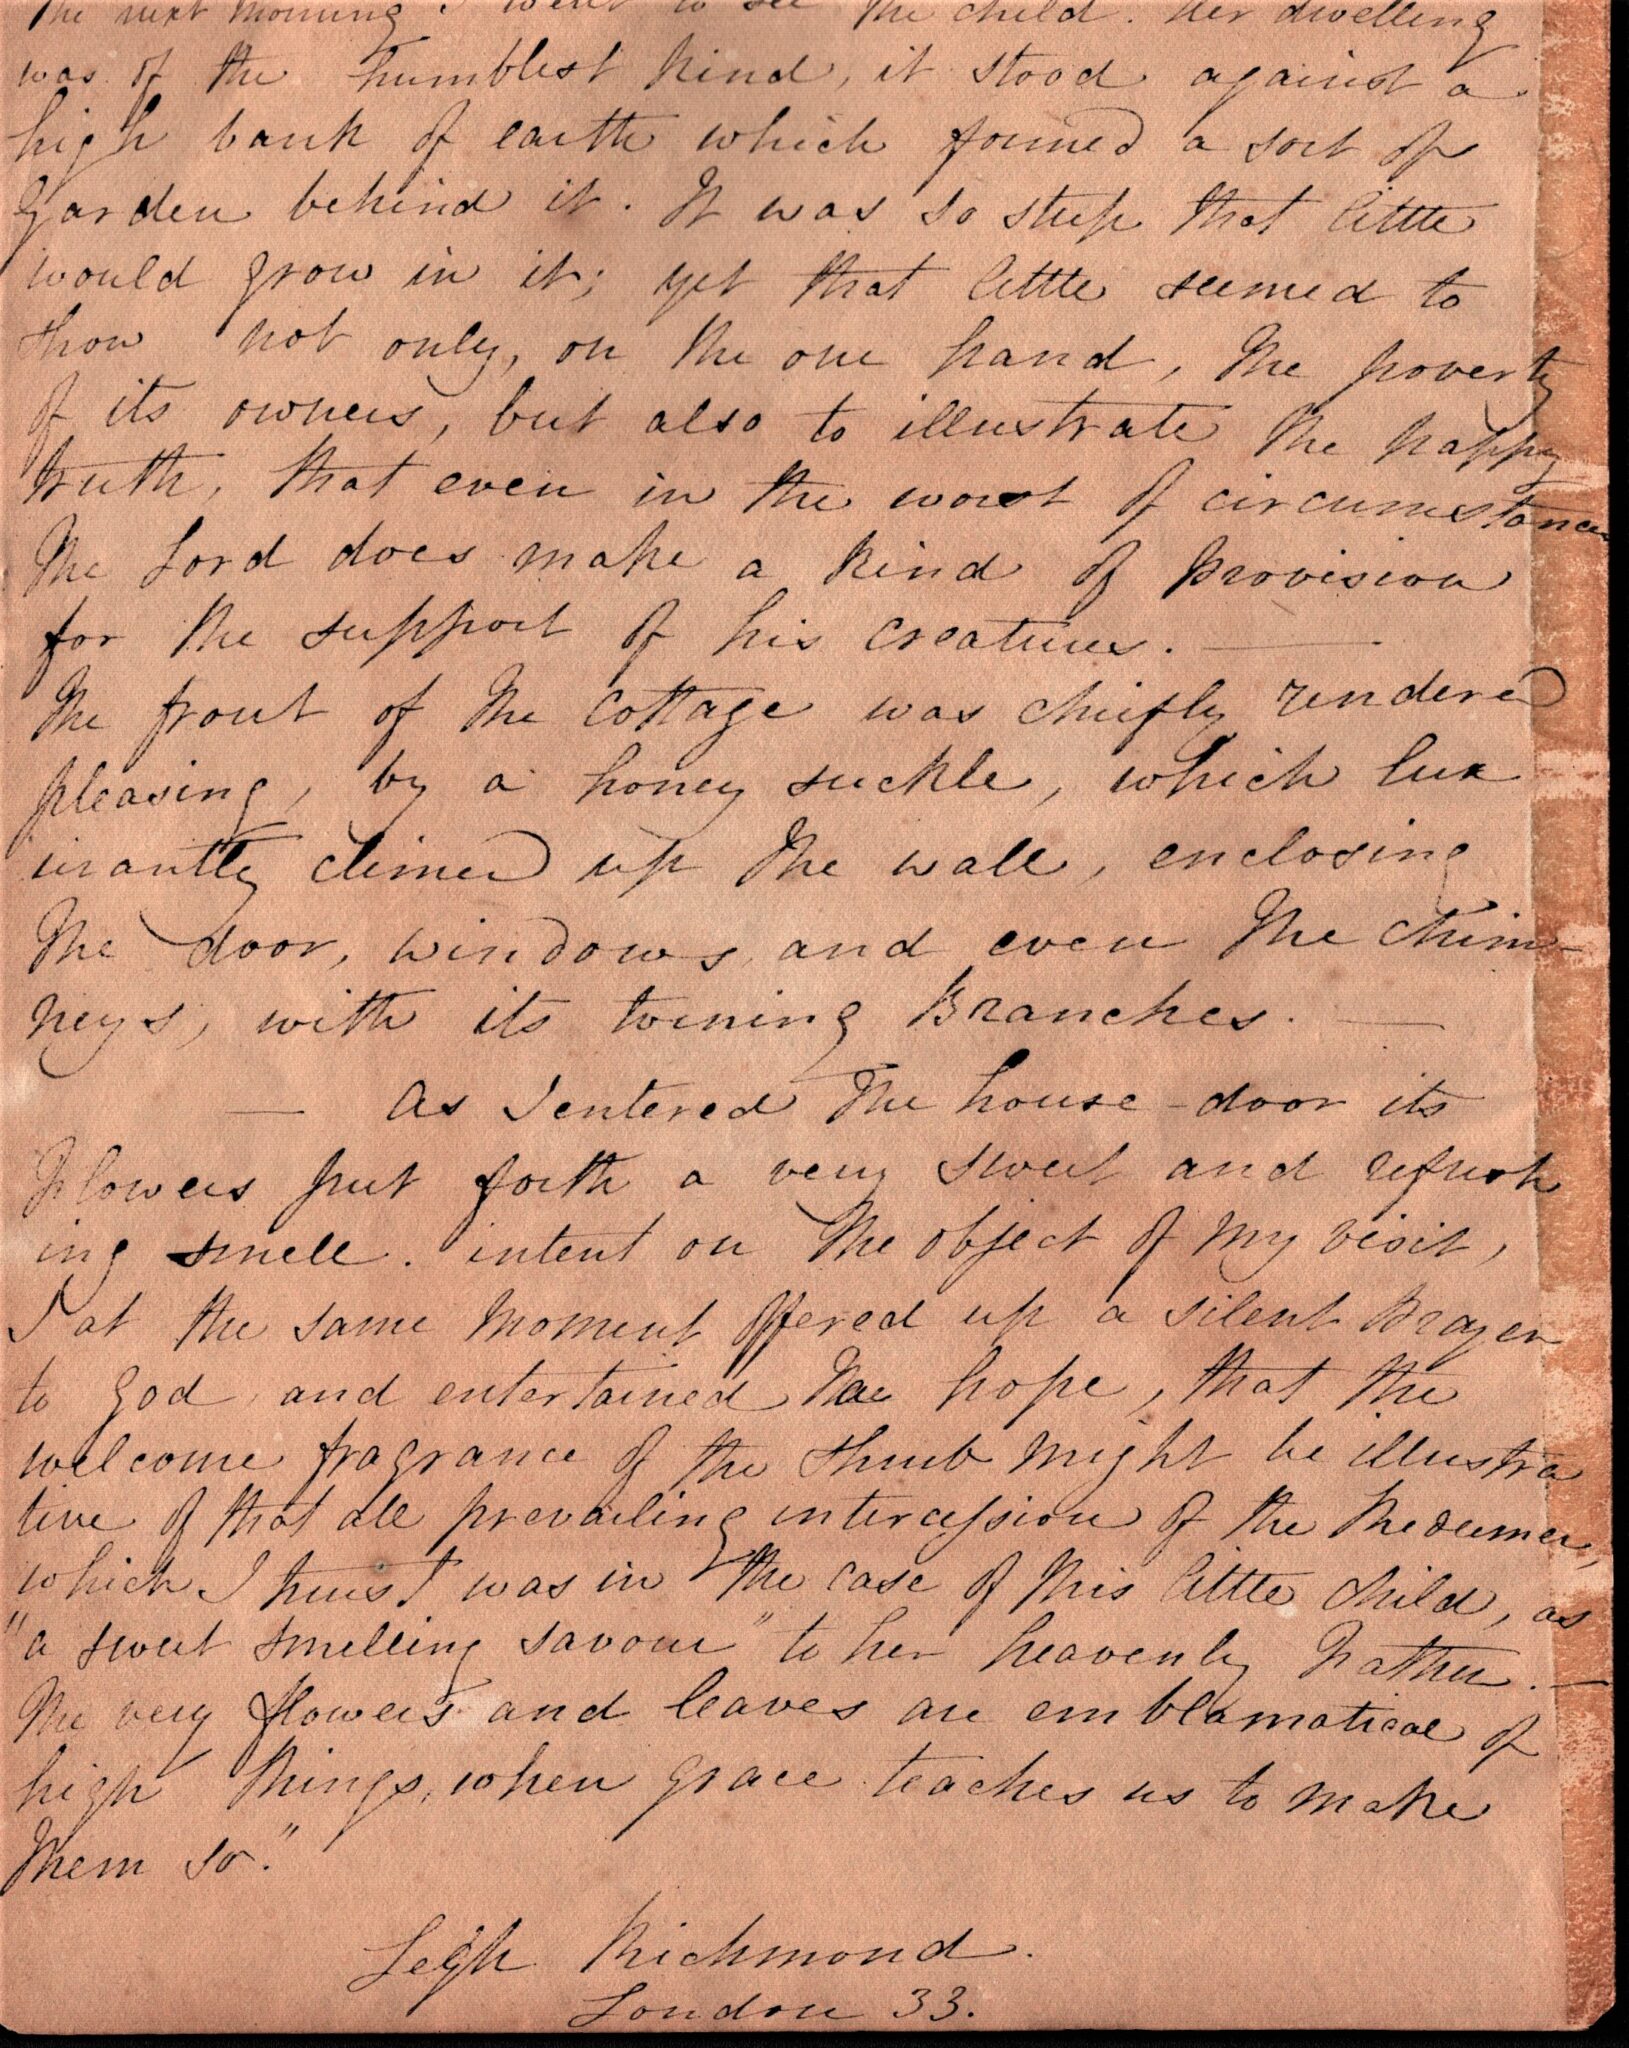 The next morning I went to see the child. Her dwelling
was of the humblest kind, it stood against a
high bank of earth which formed a sort of
garden behind it. It was so steep that little
would grow in it; yet that little seemed to
shew not only, on the one hand, the poverty
of its owners, but also to illustrate the happy
truth, that even in the worst of circumstances
the Lord does make a kind of provision
for the support of his creatures. —
The front of the cottage was chiefly rendered
pleasing, by a honey suckle, which lux
urantly climed up the wall, enclosing
the door, windows, and even the chim-
neys, with its twining Branches. —
— As I entered the house-door its
flowers put forth a very sweet and refresh
ing smell. intent on the object of my visit,
I at the same moment offered up a silent Prayer
to God, and entertained the hope, that the
welcome fragrance of the shrub might be illustra
tive of that all prevailing intercession of the Redeemer,
which I trust was in the case of this little child, as
"a sweet smelling savour" to her heavenly Father. —
The very flowers and leaves are emblamatical of
high things, when grace teaches us to make
them so."
Legh Richmond.
London 33.